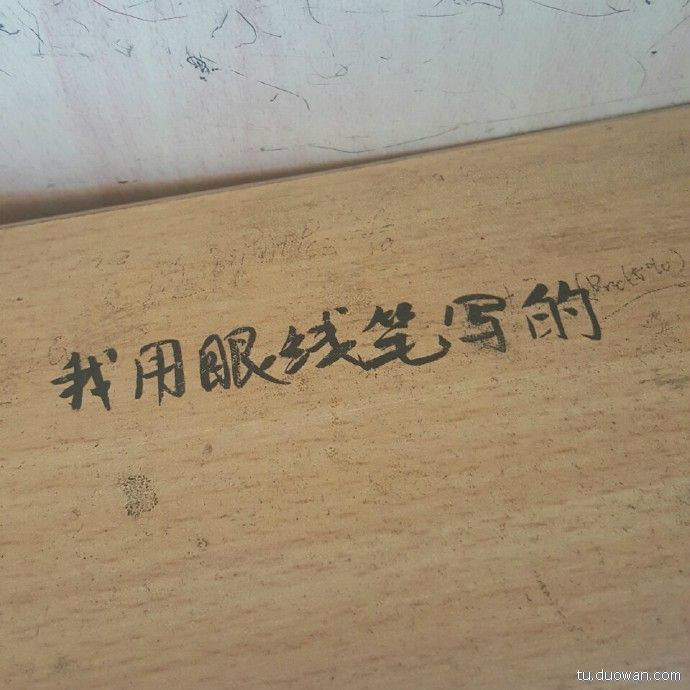 我用眼线笔写的
tu.duowan.com